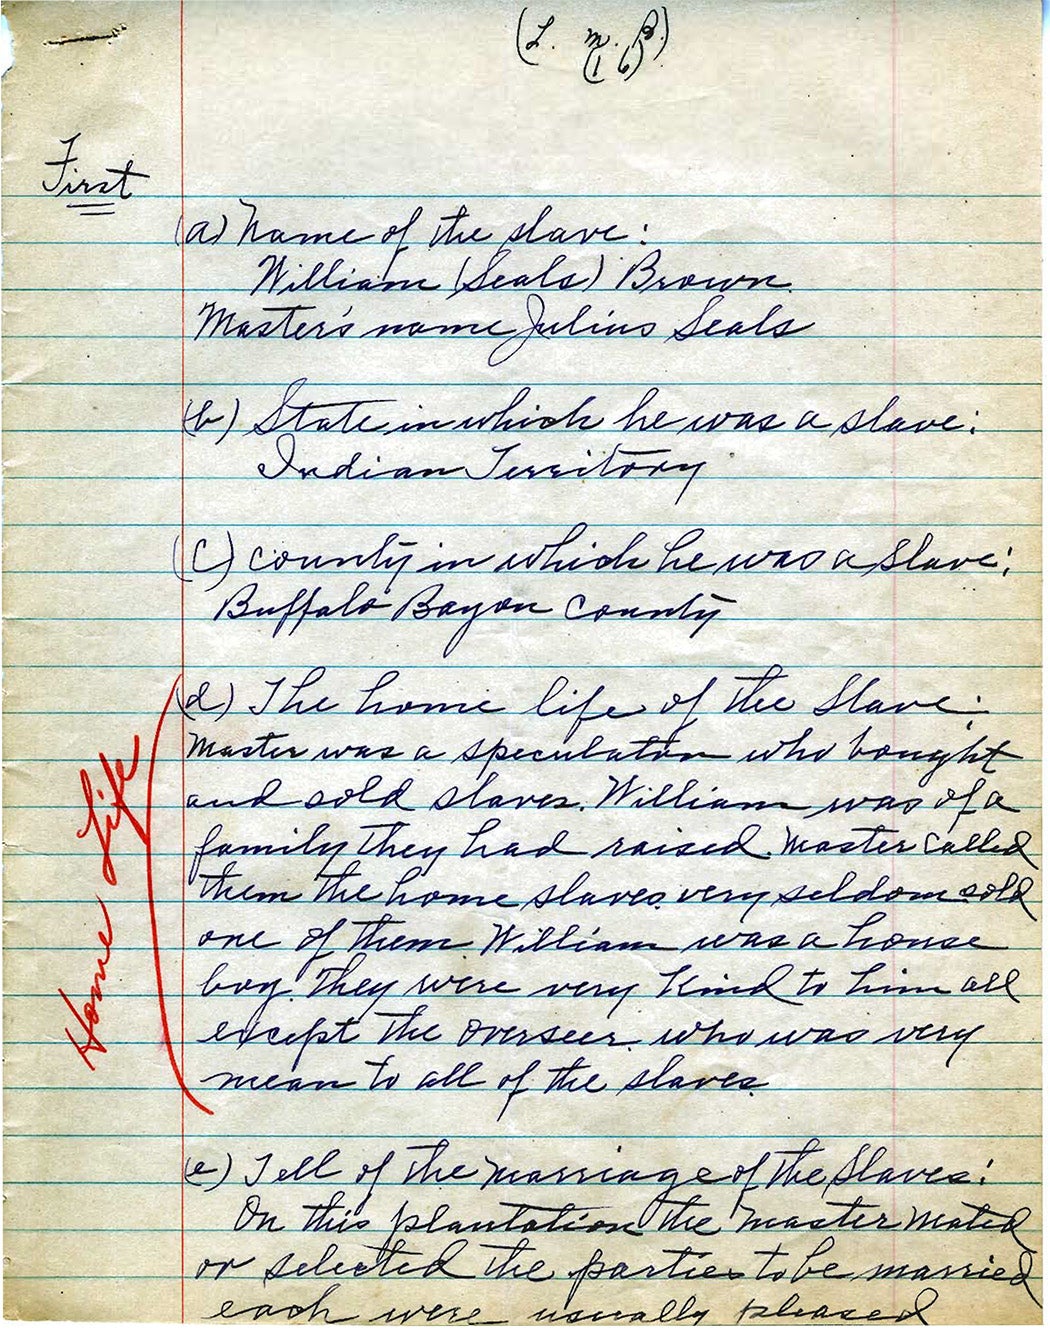 (L. M. B.)
(16)
First
(a) Name of the slave:
William (Seals) Brown.
Master's name Julius Seals
(b) State in which he was a slave:
Indian Territory
(c) county in which he was a slave:
Buffalo Bayou County
(d) The home life of the Slave:
Master was a speculator who bought
and sold slaves. William was of a
family they had raised. Master called
them the home slaves very seldom sold
one of them William was a house
boy. They were very kind to him all
except the overseer who was very
mean to all of the slaves.
Home Life
(e) Tell of the marriage of the Slaves:
On this plantation the master mated
or selected the parties to be married
each were usually pleased